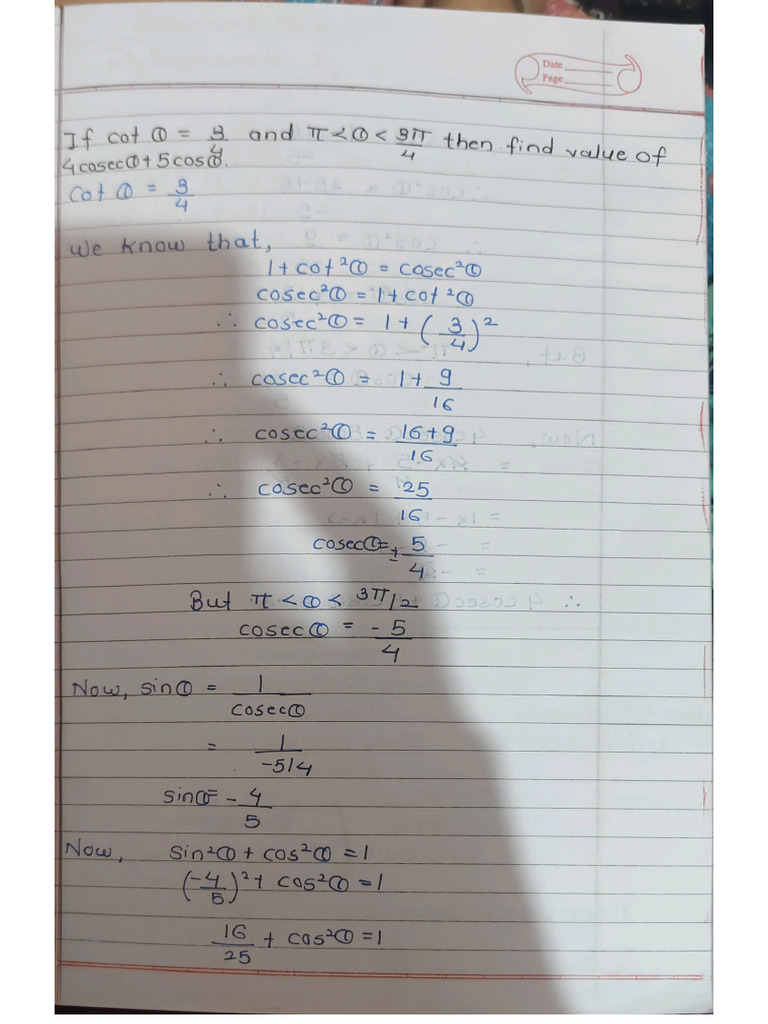 Date
Page
If cot θ = 3/4 and π < θ < 3π/4 then find value of
4cosecθ + 5cosθ.
cot θ = 3/4
We know that,
1 + cot²θ = cosec²θ
cosec²θ = 1 + cot²θ
∴ cosec²θ = 1 + (3/4)²
∴ cosec²θ = 1 + 9/16
∴ cosec²θ = 16+9/16
∴ cosec²θ = 25/16
cosecθ = ± 5/4
But π < θ < 3π/2
cosecθ = -5/4
Now, sinθ = 1/cosecθ
= 1/-5/4
sinθ = -4/5
Now, sin²θ + cos²θ = 1
(-4/5)² + cos²θ = 1
16/25 + cos²θ = 1